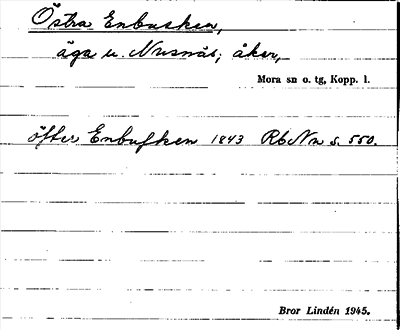 Östra Enbusken,
äga u. Nusnäs; åker,
Mora sn o. tg, Kopp. l.
öfter Enbusken 1843 RbNn s. 550.
Bror Lindén 1945.